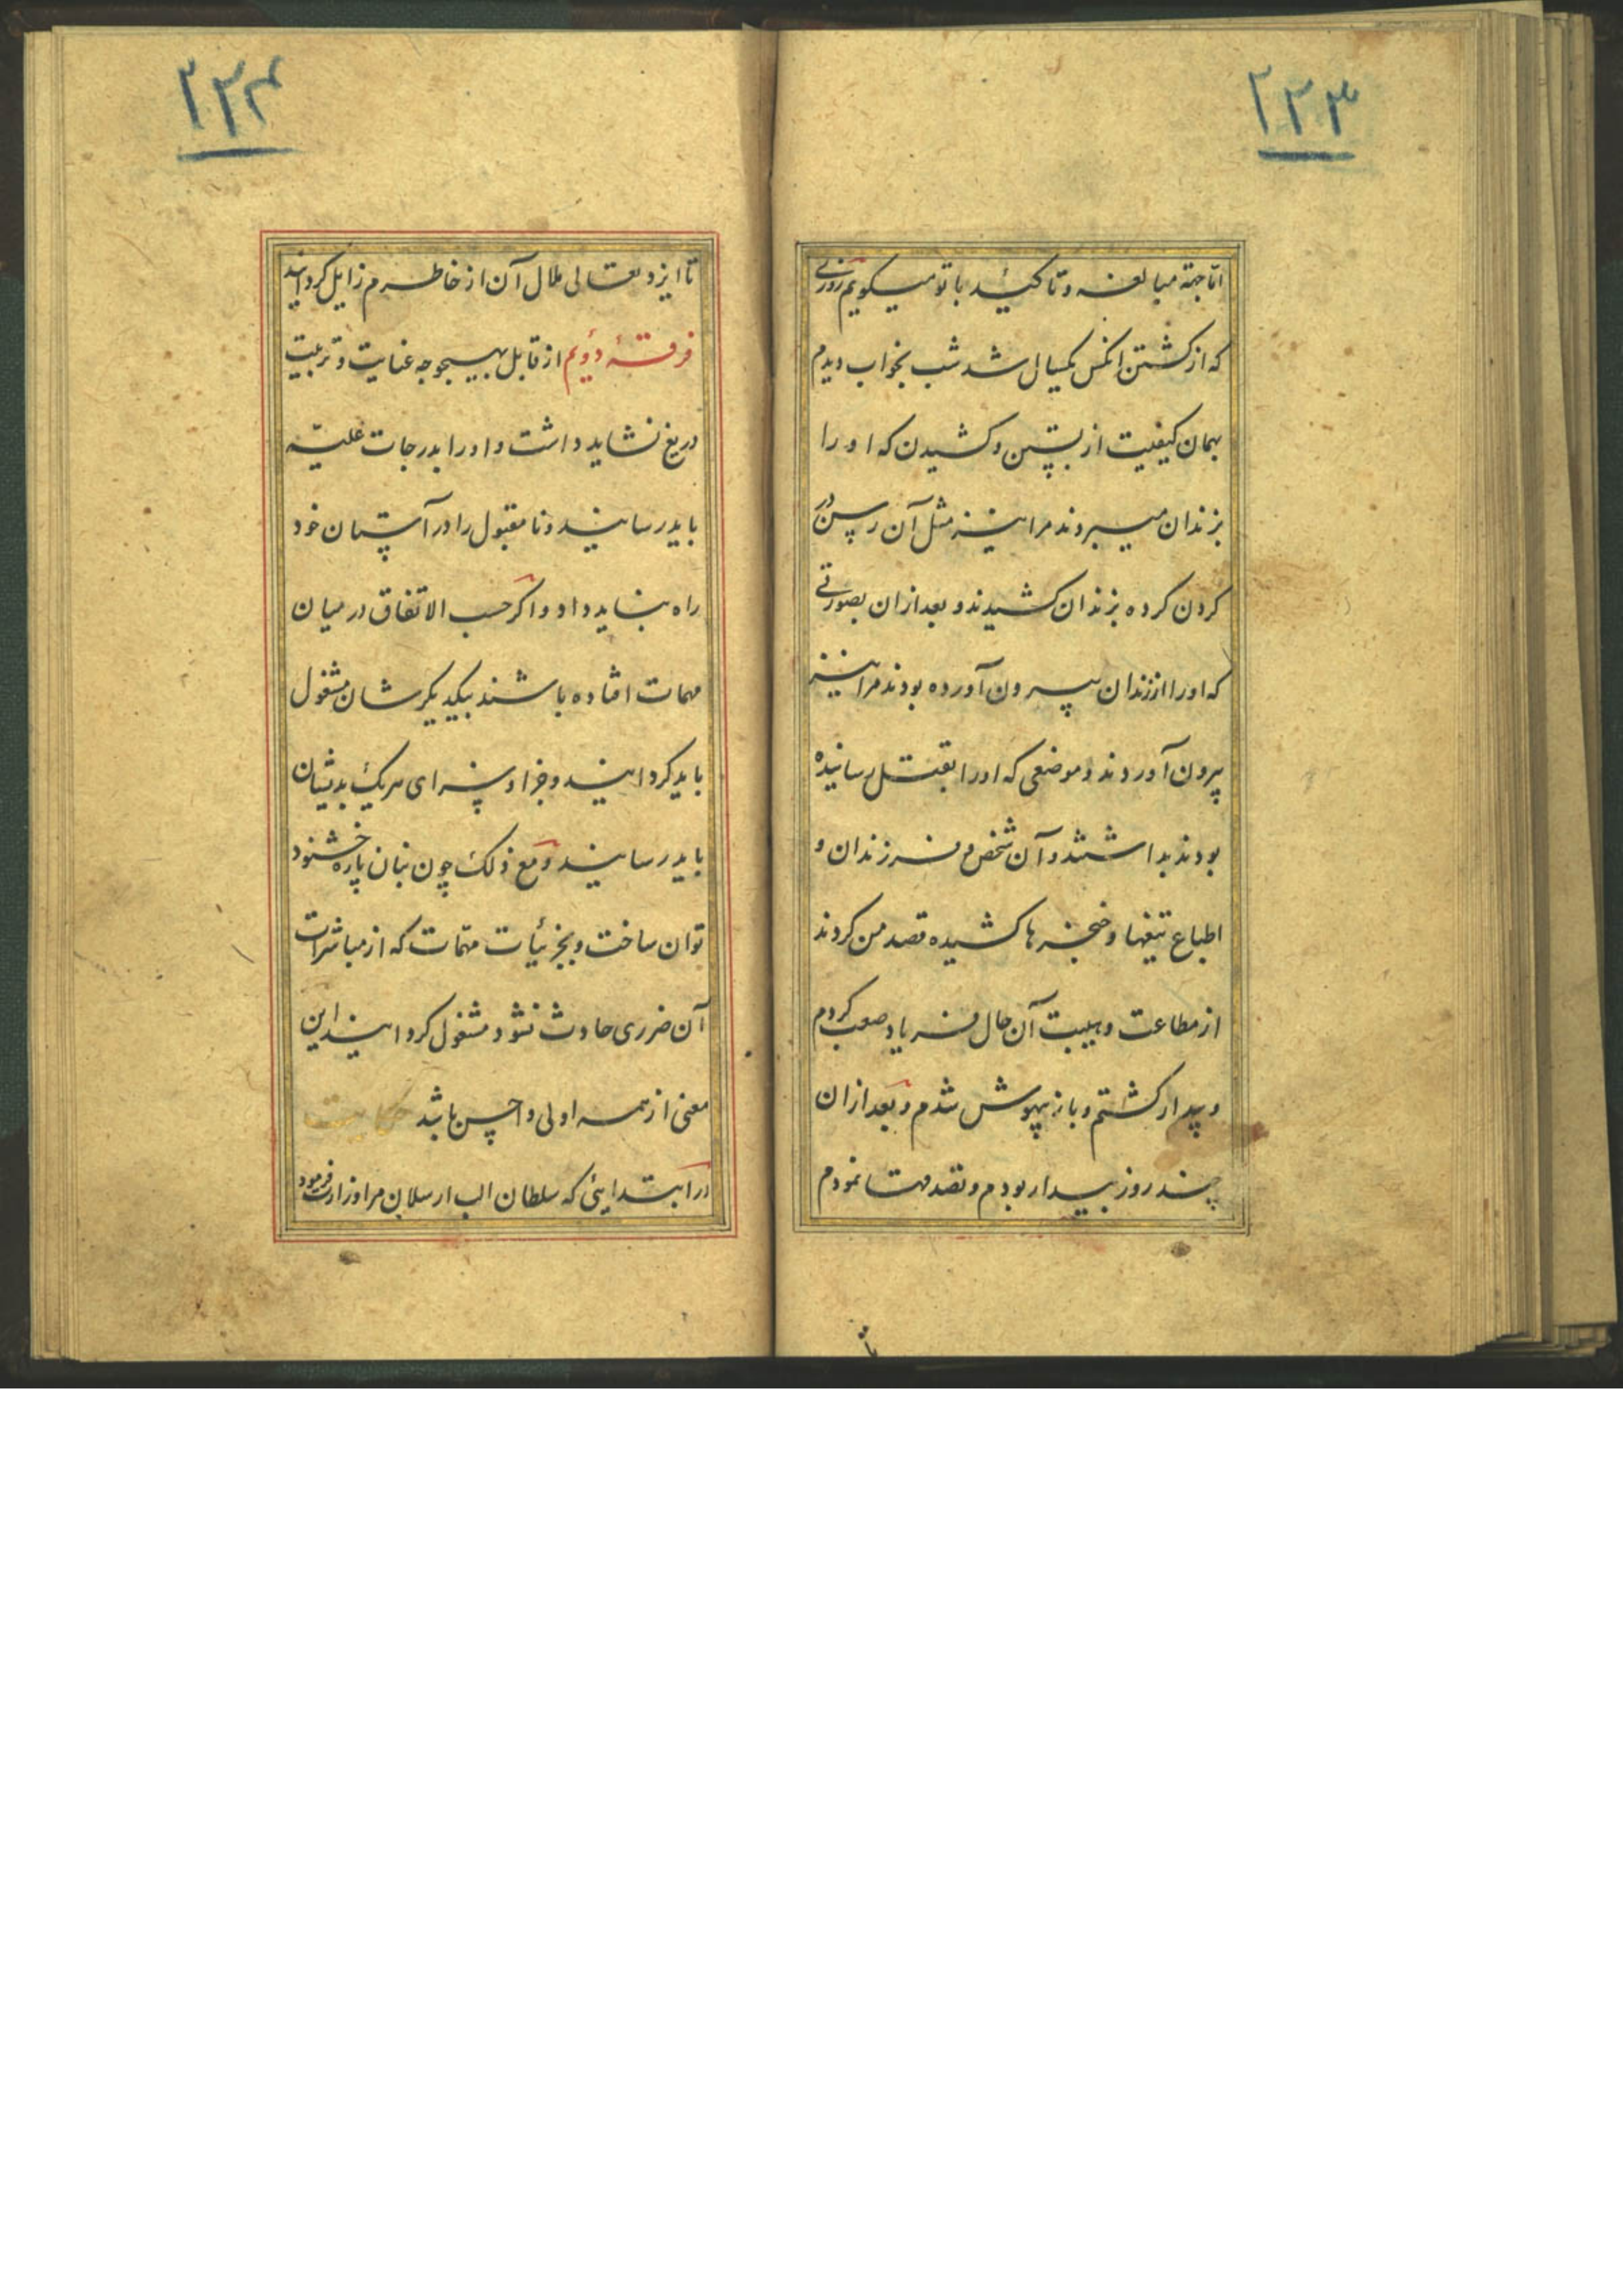 ۲۳۳
اما جهة مبالغه و تاکید با تو میکویم روزی
که از کشتن انکس یکسال شد شب بخواب دیدم
بهمان کیفیت از بستن و کشیدن که او را
بزندان میبردند مرا نیز مثل آن رسن در
کردن کرده بزندان کشیدند و بعد ازان بصورتی
که اورا از زندان بیرون آورده بودند مرا نیز
بیرون آوردند و موضعی که اورا بقتل رسانیده
بودند بداشتند و آن شخص و فرزندان و
اطباع تیغها و خنجرها کشیده قصد من کردند
از مطاعت و هیبت آن حال فریاد صعب کردم
و بیدار کشتم و باز بیهوش شدم و بعد ازان
چند روز بیدار بودم و تصدقها نمودم
تا
۲۳۴
تا ایزد تعالی ملال آن از خاطرم زایل کردانید
فرقهٔ دوئم از قابل بهیچوجه عنایت و تربیت
دریغ نشاید داشت و اورا بدرجات علیّه
باید رسانید و نا مقبول را در آستان خود
راه نباید داد و اکر حسب الاتفاق در میان
مهمات افتاده باشند بیکدیکرشان مشغول
باید کردانید و جزا و سزای هریک بدیشان
باید رسانید و مع ذلک چون بنان پاره خشنود
توان ساخت و بجزئیات مهمّات که از مباشرات
آن ضرری حادث نشود مشغول کردانید این
معنی از همه اولی و احسن باشد حکایت
در ابتدایئ که سلطان الب ارسلان مرا وزارت فرمود